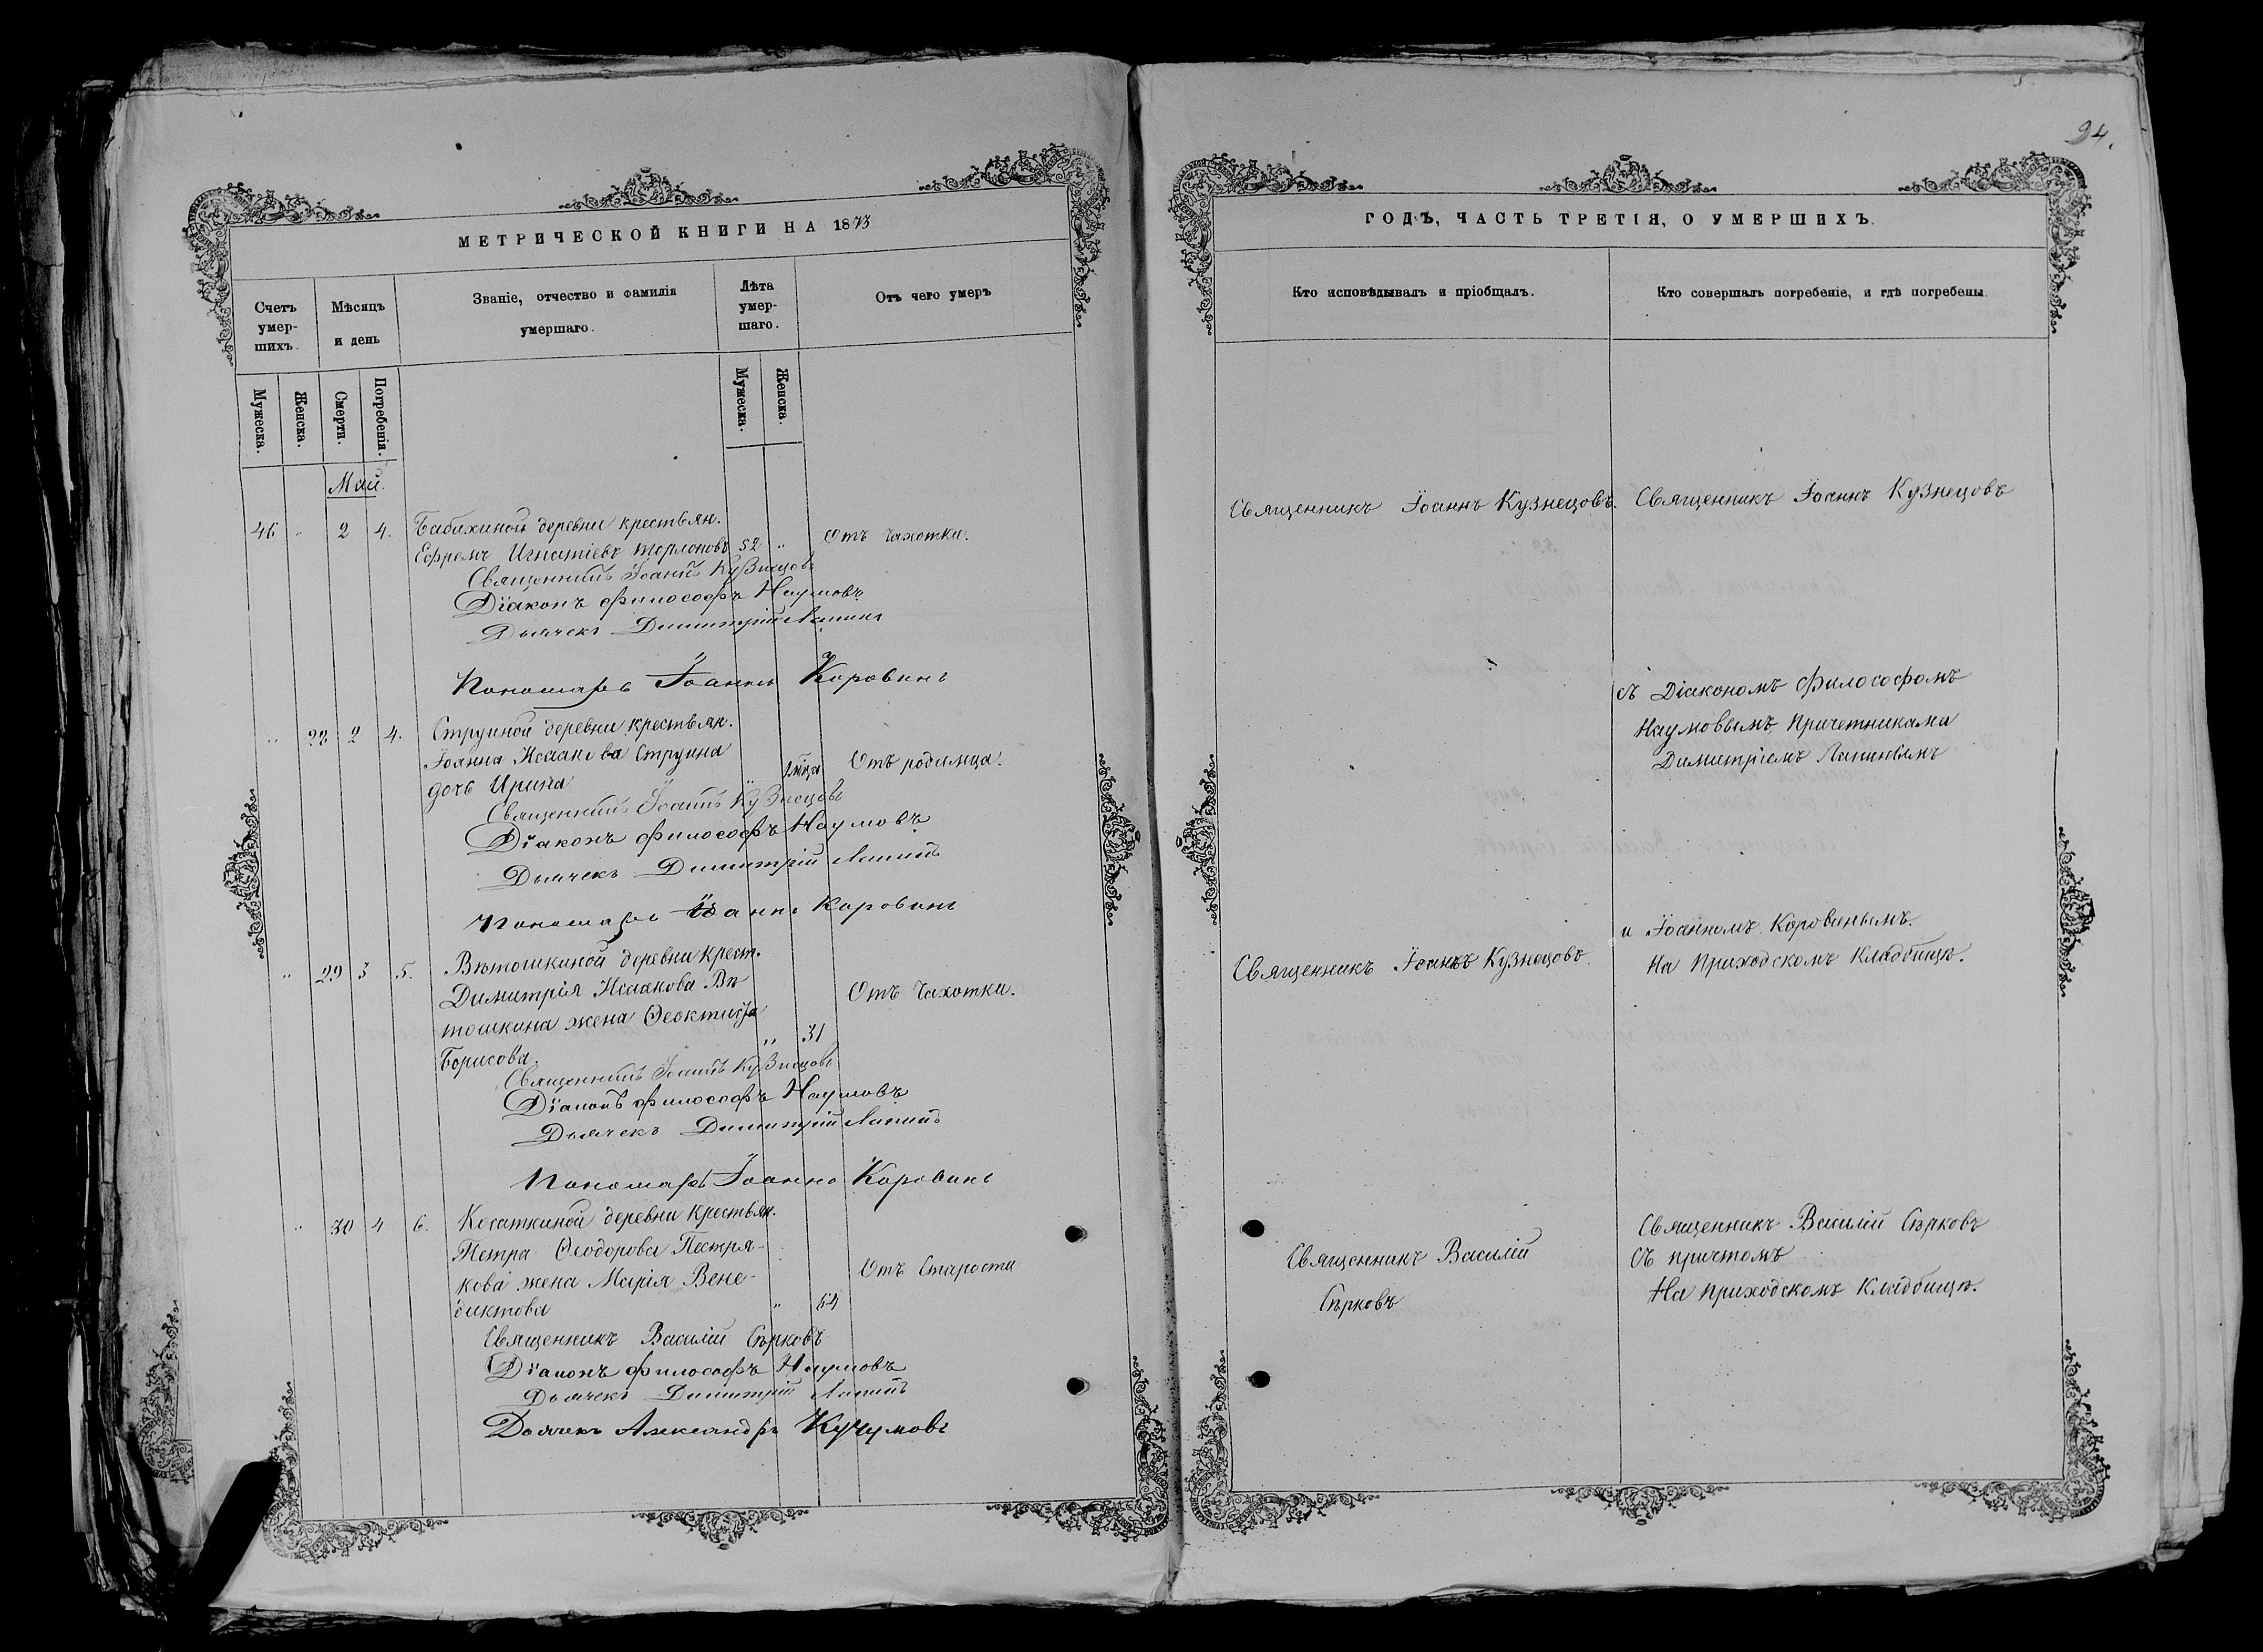 94.
МЕТРИЧЕСКОЙ КНИГИ НА 1873
Счетъ умер-шихъ.
Мѣсяцъ и день
Званіе, отчество и фамилія умершаго.
Лѣта умер-шаго.
Отъ чего умеръ
Мужеска.
Женска.
Смерти.
Погребенія.
Мужеска.
Женска.
Май.
46 " 2 4. Бабихиной деревни крестьян.
Ефремъ Игнатіевъ 52 " Отъ чахотки.
Священникъ Іоаннъ Кузнецовъ
Діаконъ Философъ Наумовъ
Дьячекъ Димитрій Лапинъ
Пономарь Іоаннъ Коровинъ
" 28 2 4. Струиной деревни крестьян.
Іоанна Исаакова Струина
дочь Ирина " Отъ родимца.
Священникъ Іоаннъ Кузнецовъ
Діаконъ Философъ Наумовъ
Дьячекъ Димитрій Лапинъ
Пономарь Іоаннъ Коровинъ
" 29 3 5. Вѣтошкиной деревни крест.
Димитрія Исаакова Вѣ-
тошкина жена Ѳеоктиста " 31 Отъ чахотки.
Борисова.
Священникъ Іоаннъ Кузнецовъ
Діаконъ Философъ Наумовъ
Дьячекъ Димитрій Лапинъ
Пономарь Іоаннъ Коровинъ
" 30 4 6. Косаткиной деревни крестьян.
Петра Ѳеодорова Пестря-
кова жена Марія Вене-
диктова " 64 Отъ старости
Священникъ Василій Сѣрковъ
Діаконъ Философъ Наумовъ
Дьячекъ Димитрій Лапинъ
Дьячекъ Александръ Кучумовъ
ГОДЪ, ЧАСТЬ ТРЕТІЯ, О УМЕРШИХЪ.
Кто исповѣдывалъ и пріобщалъ.
Кто совершалъ погребеніе, и гдѣ погребены.
Священникъ Іоаннъ Кузнецовъ.
Священникъ Іоаннъ Кузнецовъ
съ Діакономъ Философомъ
Наумовымъ, Причетниками
Димитріемъ Лапинымъ
и Іоанномъ Коровинымъ.
Священникъ Іоаннъ Кузнецовъ.
На Приходскомъ Кладбищѣ.
Священникъ Василій
Сѣрковъ
Священникъ Василій Сѣрковъ
Съ причтомъ
На приходскомъ Кладбищѣ.